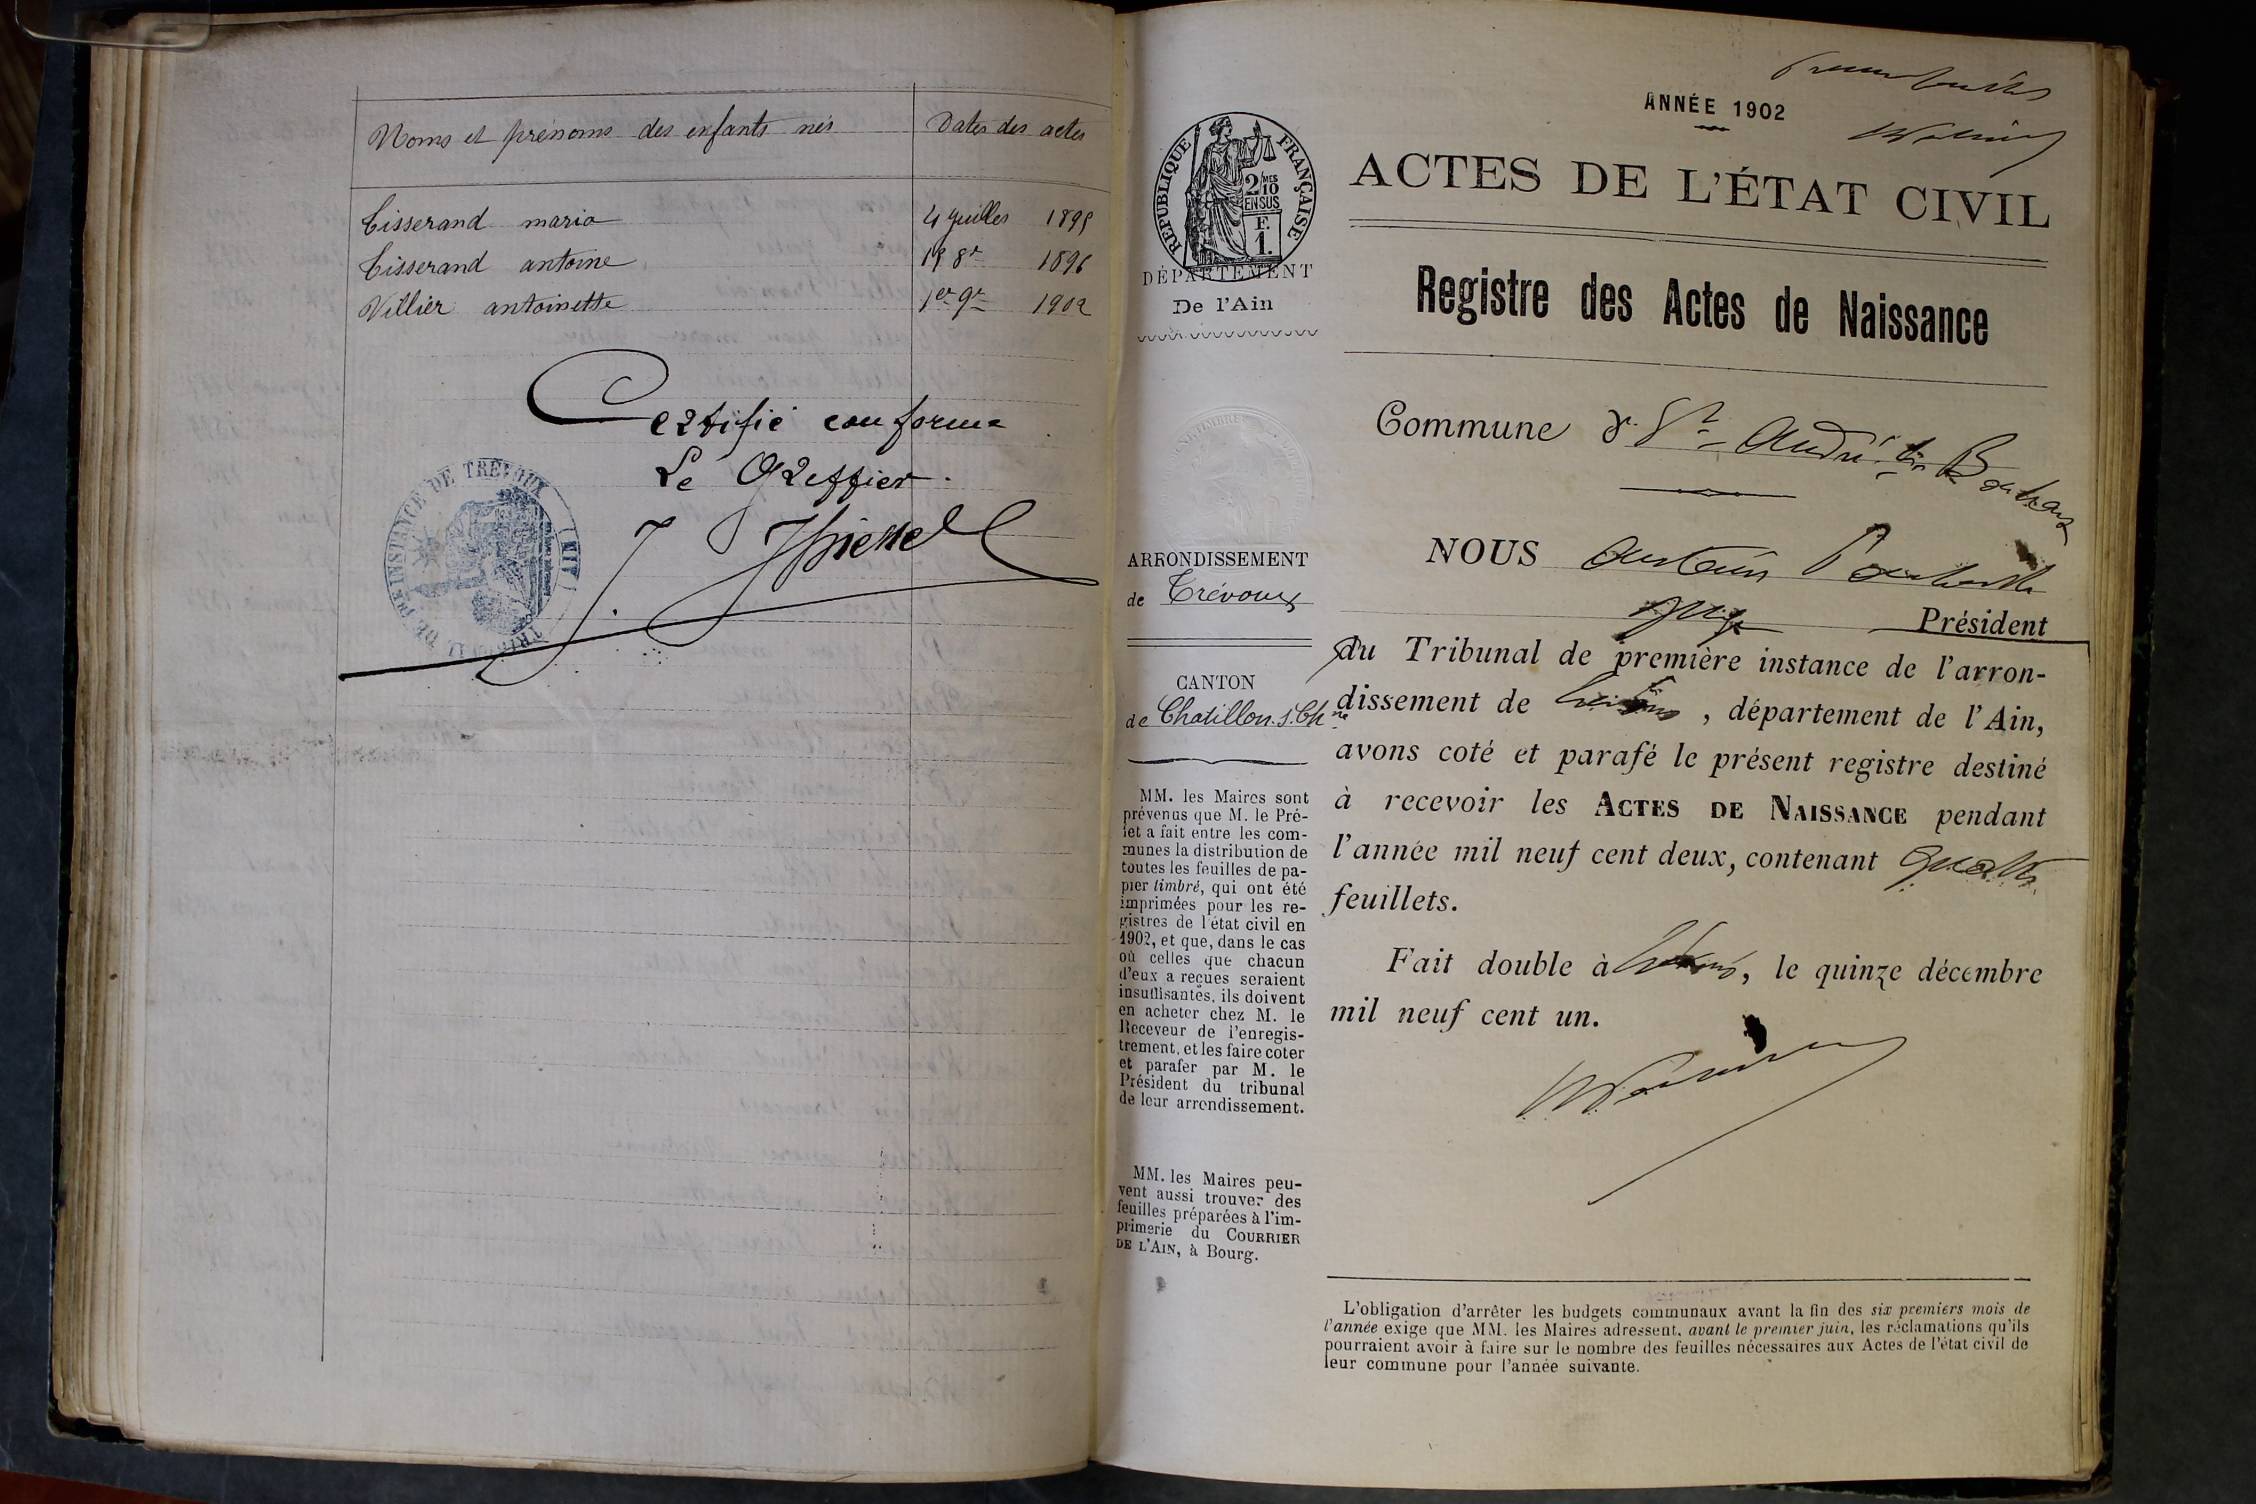 Noms et prénoms des enfants nés
Dates des actes
Tisserand maria
4 juillet 1895
Tisserand antoine
19 8re 1896
Villier antoinette
1er 9re 1902
Certifié conforme
Le Greffier
TRIB. DE 1ERE INSTANCE DE TRÉVOUX (AIN)
ANNÉE 1902
ACTES DE L'ÉTAT CIVIL
RÉPUBLIQUE FRANÇAISE
2/10MES
EN SUS
F.
1.
DÉPARTEMENT
De l'Ain
Registre des Actes de Naissance
Commune de St André le Bouchoux
ARRONDISSEMENT
de Trévoux
CANTON
de Chatillon s. Chne
MM. les Maires sont
prévenus que M. le Pré-
fet a fait entre les com-
munes la distribution de
toutes les feuilles de pa-
pier timbré, qui ont été
imprimées pour les re-
gistres de l'état civil en
1902, et que, dans le cas
où celles que chacun
d'eux a reçues seraient
insuffisantes, ils doivent
en acheter chez M. le
Receveur de l'enregis-
trement, et les faire coter
et parafer par M. le
Président du tribunal
de leur arrondissement.
MM. les Maires peu-
vent aussi trouver des
feuilles préparées à l'im-
primerie du COURRIER
DE L'AIN, à Bourg.
NOUS
juge Président
du Tribunal de première instance de l'arron-
dissement de Trévoux, département de l'Ain,
avons coté et parafé le présent registre destiné
à recevoir les ACTES DE NAISSANCE pendant
l'année mil neuf cent deux, contenant quatre
feuillets.
Fait double à Trévoux, le quinze décembre
mil neuf cent un.
L'obligation d'arrêter les budgets communaux avant la fin des six premiers mois de
l'année exige que MM. les Maires adressent, avant le premier juin, les réclamations qu'ils
pourraient avoir à faire sur le nombre des feuilles nécessaires aux Actes de l'état civil de
leur commune pour l'année suivante.